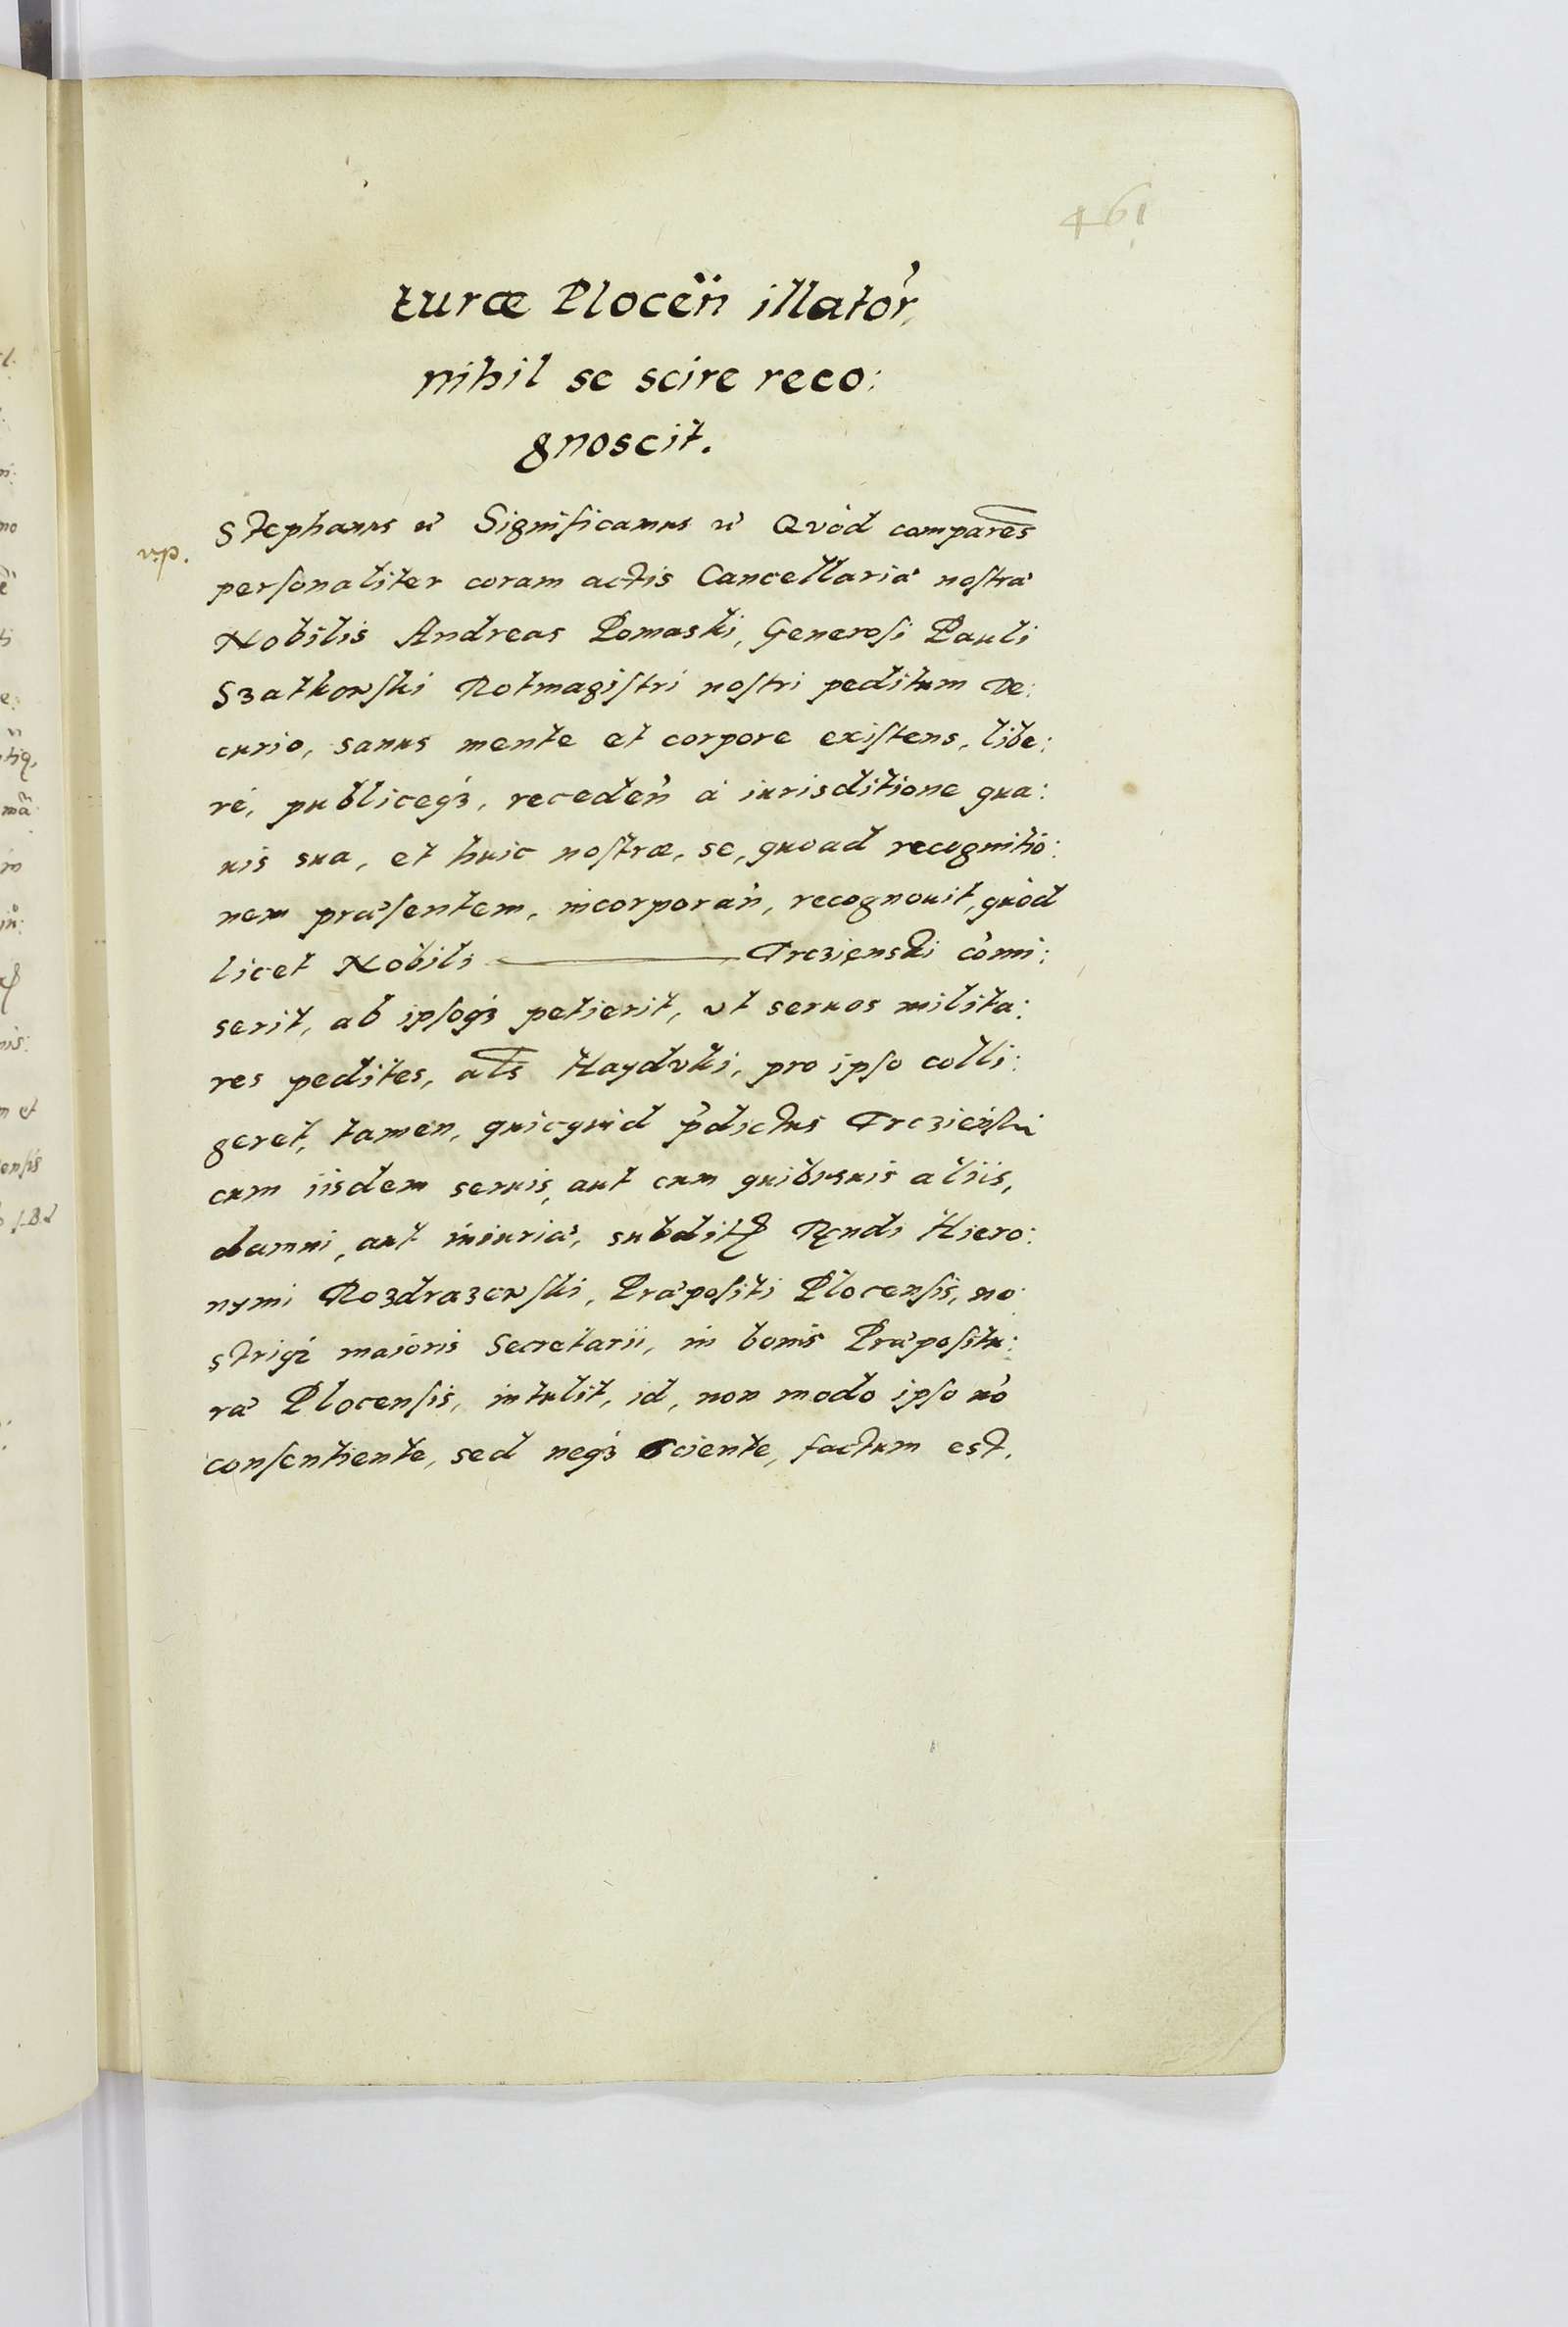 461
turæ Plocen̈ illator̕,
nihil se scire reco:
gnoscit.
Stephanus Significamus Qvòd compare͞s
personaliter coram actis Cancellariæ nostræ
Nobilis Andreas Pomaski, Generosi Pauli
Szatkowski Rotmagistri nostri peditum De:
curio, sanus mente et corpore existens, libe:
rè, publiceqз, receden̕ à iurisditione qua:
uis sua, et huic nostræ, se, quoad recognitio:
nem præsentem, incorporan̕, recognouit, quòd
licet Nobili ——— Trczienski com̕i:
serit, ab ipsoqз petierit, vt seruos milita:
res pedites, al͞s Haydvki, pro ipso colli:
geret, tamen, quicquid p̕dictus Trczieński
cum iisdem seruis, aut cum quibusuis aliis,
damni, aut iniuriæ, subditꝭ Rendi Hiero:
nymi Rozdrazewski, Præpositi Plocensis, no:
striqз maioris Secretarii, in bonis Præpositu:
ræ Plocensis, intulit, id, non modo ipso no̕
consentiente, sed neqз sciente, factum est.